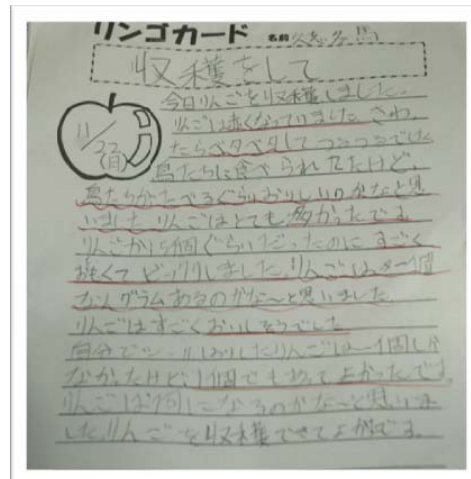 リンゴカード 名前
収穫をして
11/22(日)
今日りんごを収穫しました。
りんごは赤くなっていました。さわっ
たらベタベタしてつるつるでした
鳥たちに食べられてたけど、
鳥たちがたべるぐらいおいしいのかなと思
いました。りんごはとても多かったです。
りんごが15個ぐらいだったのにすごく
おもくてビックリしました。りんごは 1個
なんグラムあるのかな〜と思いました。
りんごはすごくおいしそうでした
自分で したりんごは 1個しか
なかったけど、1個でも よかったです。
りんごは何になるのかな〜と思いま
した。りんごを収穫できてよかったです。